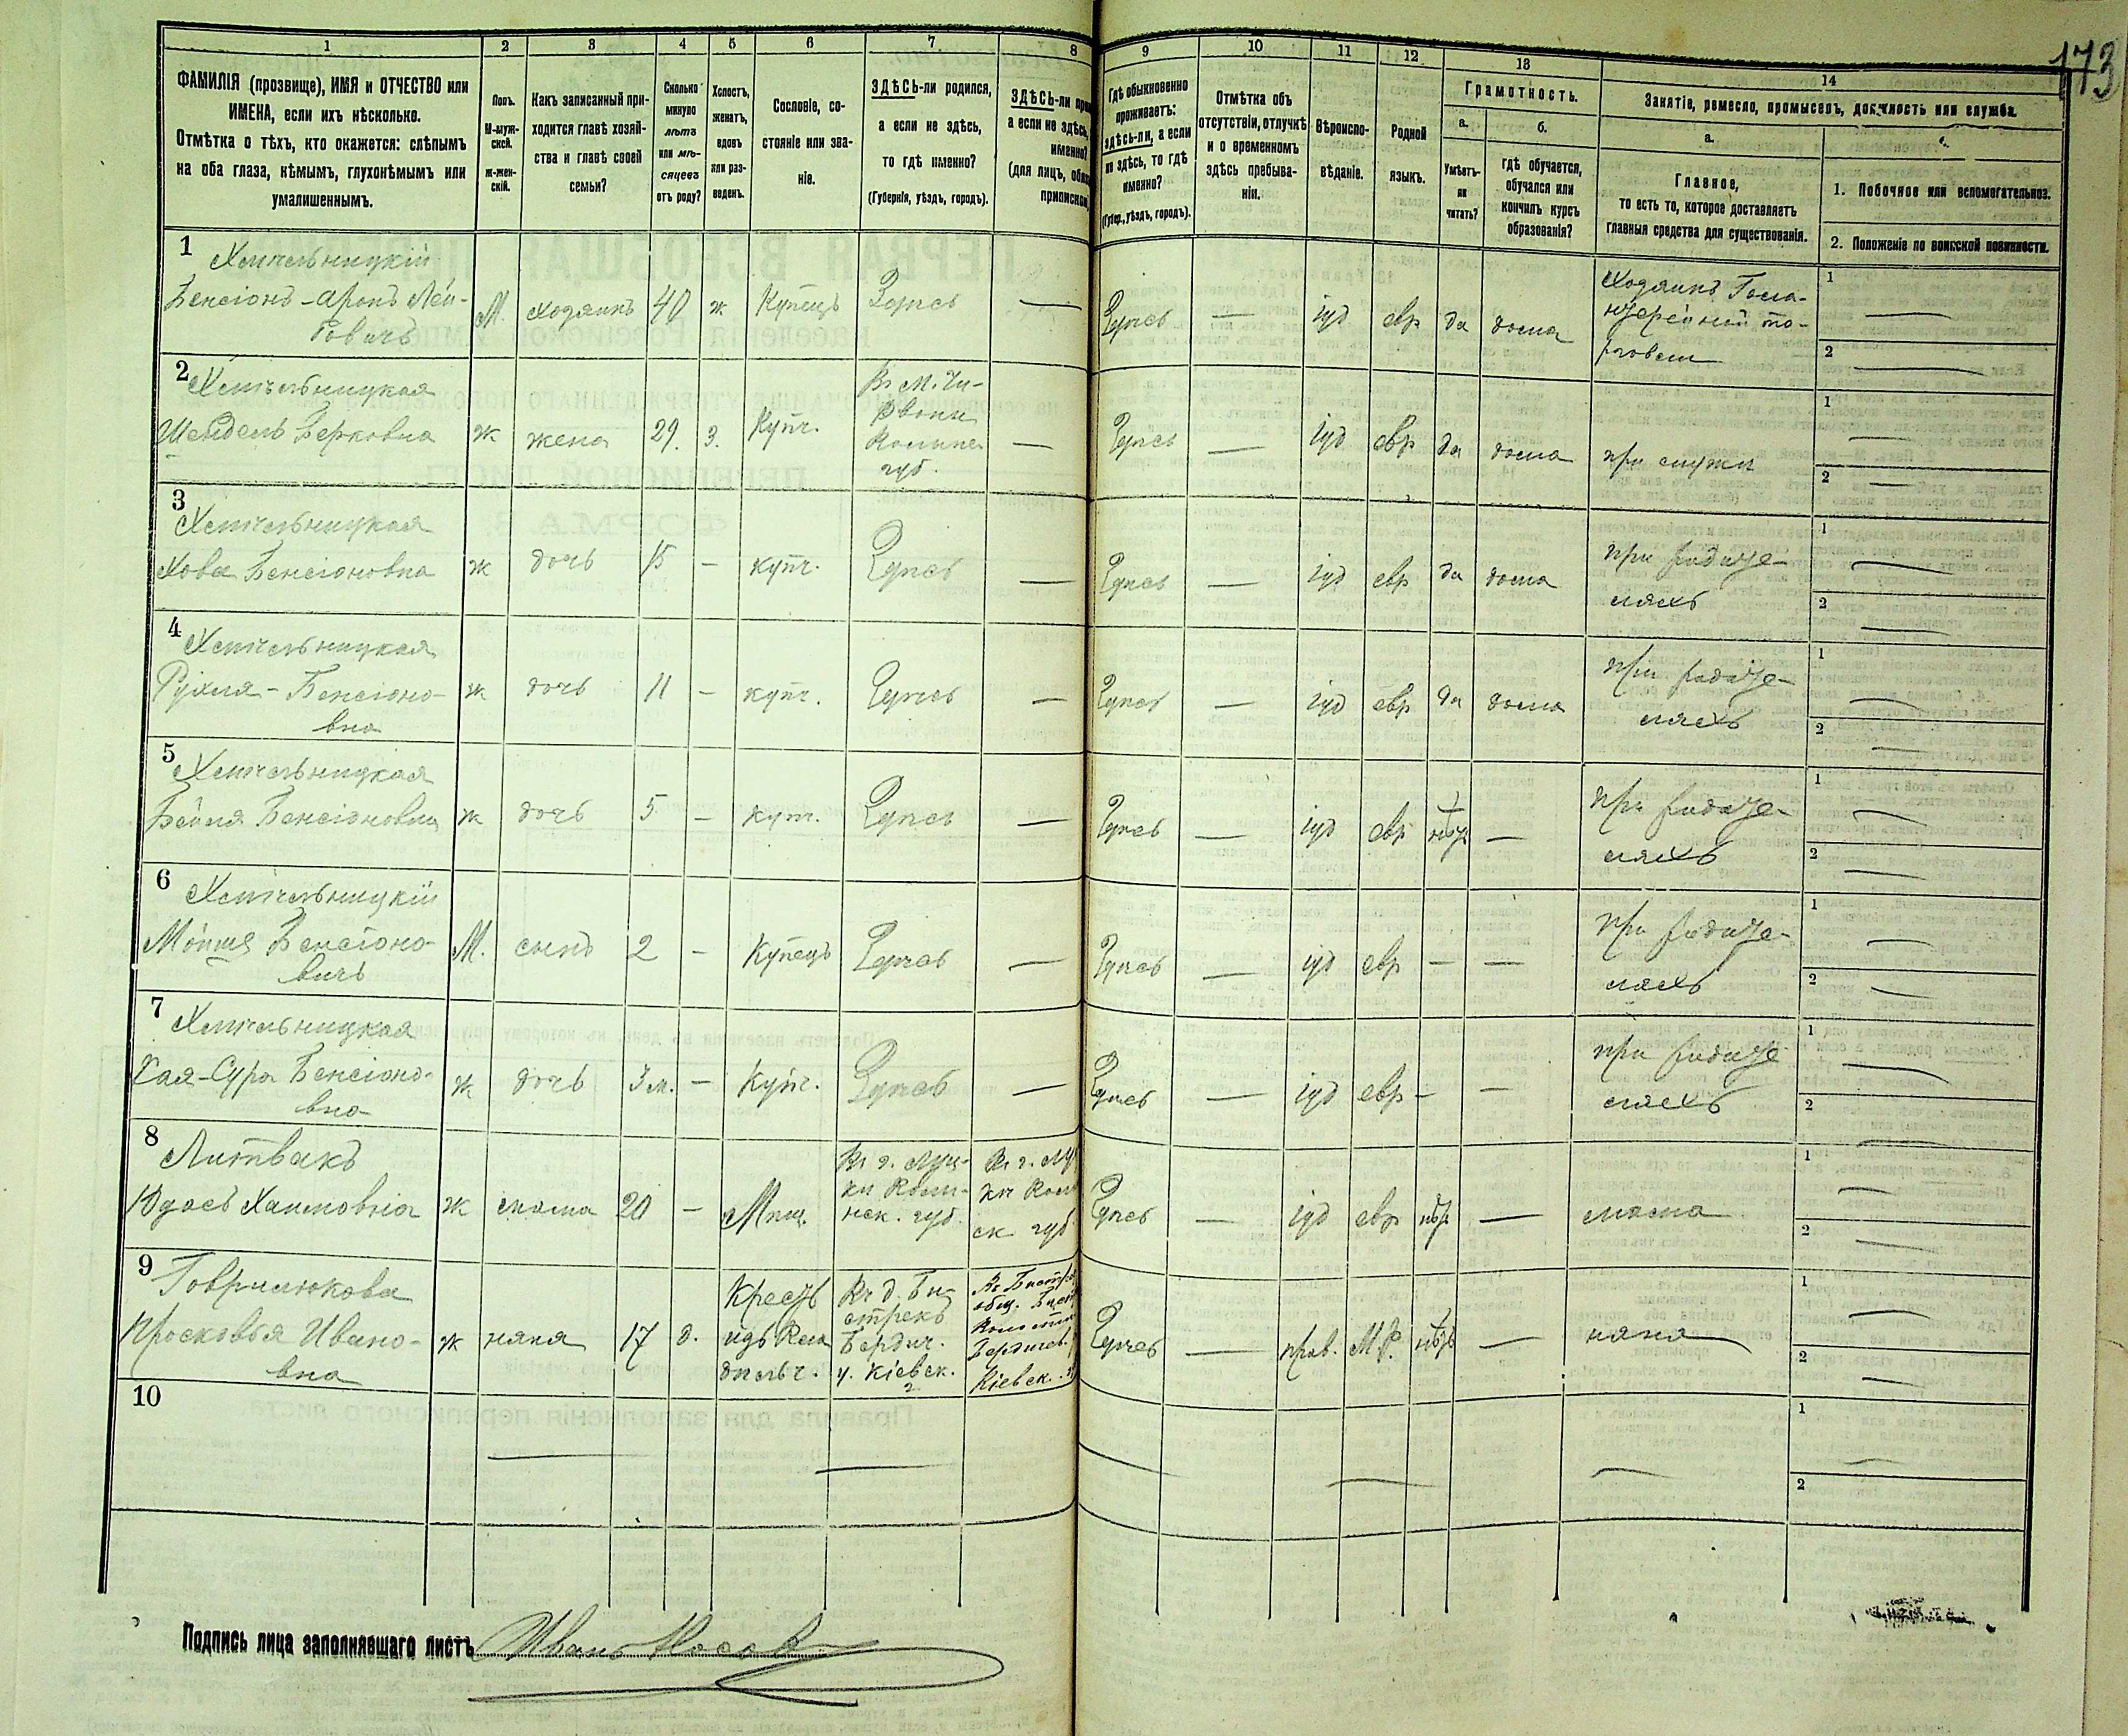 173
1 2 3 4 5 6 7 8 9 10 11 12 13 14
ФАМИЛІЯ (прозвище), ИМЯ и ОТЧЕСТВО или
ИМЕНА, если ихъ нѣсколько.
Отмѣтка о тѣхъ, кто окажется: слѣпымъ
на оба глаза, нѣмымъ, глухонѣмымъ или
умалишеннымъ.
Полъ.
М-муж-
ской.
ж-жен-
скій.
Какъ записанный при-
ходится главѣ хозяй-
ства и главѣ своей
семьи?
Сколько
минуло
лѣтъ
или мѣ-
сяцевъ
отъ роду?
Холостъ,
женатъ,
вдовъ
или раз-
веденъ.
Сословіе, со-
стояніе или зва-
ніе.
ЗДѢСЬ-ли родился,
а если не здѣсь,
то гдѣ именно?
(Губернія, уѣздъ, городъ).
ЗДѢСЬ-ли
а если не здѣсь,
именно?
(для лицъ,
Гдѣ обыкновенно
проживаетъ:
здѣсь-ли, а если
не здѣсь, то гдѣ
именно?
(Губер., уѣздъ, городъ).
Отмѣтка объ
отсутствіи, отлучкѣ
и о временномъ
здѣсь пребыва-
ніи.
Вѣроиспо-
вѣданіе.
Родной
языкъ.
Грамотность.
а.
Умѣетъ-
ли
читать?
б.
гдѣ обучается,
обучался или
кончилъ курсъ
образованія?
Занятіе, ремесло, промыселъ, должность или служба.
а.
Главное,
то есть то, которое доставляетъ
главныя средства для существованія.
1. Побочное или вспомогательное.
2. Положеніе по воинской повинности.
1 Хмѣльницкій
Бенсіонъ-Аронъ Лей-
бовичъ М. хозяинъ 40 ж Купецъ Здѣсь — Здѣсь — іуд евр да дома Хозяинъ Гала-
нтерейной то-
рговли 1 — 2 —
2 Хмѣльницкая
Шейндель Берковна ж жена 29. з. Купч. губ. — Здѣсь — іуд евр да дома при мужѣ 1 — 2 —
3 Хмѣльницкая
Хова Бенсіоновна ж дочь 15 — купч. Здѣсь — Здѣсь — іуд евр да дома при родите-
ляхъ 1 — 2 —
4 Хмѣльницкая
Рухля-Бенсіоно-
вна ж дочь 11 — купч. Здѣсь — Здѣсь — іуд евр да дома при родите-
ляхъ 1 — 2 —
5 Хмѣльницкая
Бейля Бенсіоновна ж дочь 5 — купч. Здѣсь — Здѣсь — іуд евр нѣтъ — при родите-
ляхъ 1 — 2 —
6 Хмѣльницкій
Мойше Бенсіоно-
вичъ М. сынъ 2 — Купецъ Здѣсь — Здѣсь — іуд евр — — при родите-
ляхъ 1 — 2 —
7 Хмѣльницкая
Хая-Сура Бенсіоно-
вна ж дочь 3 м. — Купч. Здѣсь — Здѣсь — іуд евр — — при родите-
ляхъ 1 — 2 —
8 Литвакъ
Юдась Хаимовна ж 20 — Мѣщ. губ. Здѣсь — іуд евр нѣтъ — 1 — 2 —
9 Гаврилюкова
Просковья Ивано-
вна ж няня 17 д. Крест Въ д. Бы-
стрекъ
Бердич.
у. Кіевск.
г. Бердичев.
Кіевск. Здѣсь — прав. М.Р. нѣтъ — няня 1 — 2 —
10 — — — — 1 — 2
Подпись лица заполнявшаго листъ Иванъ